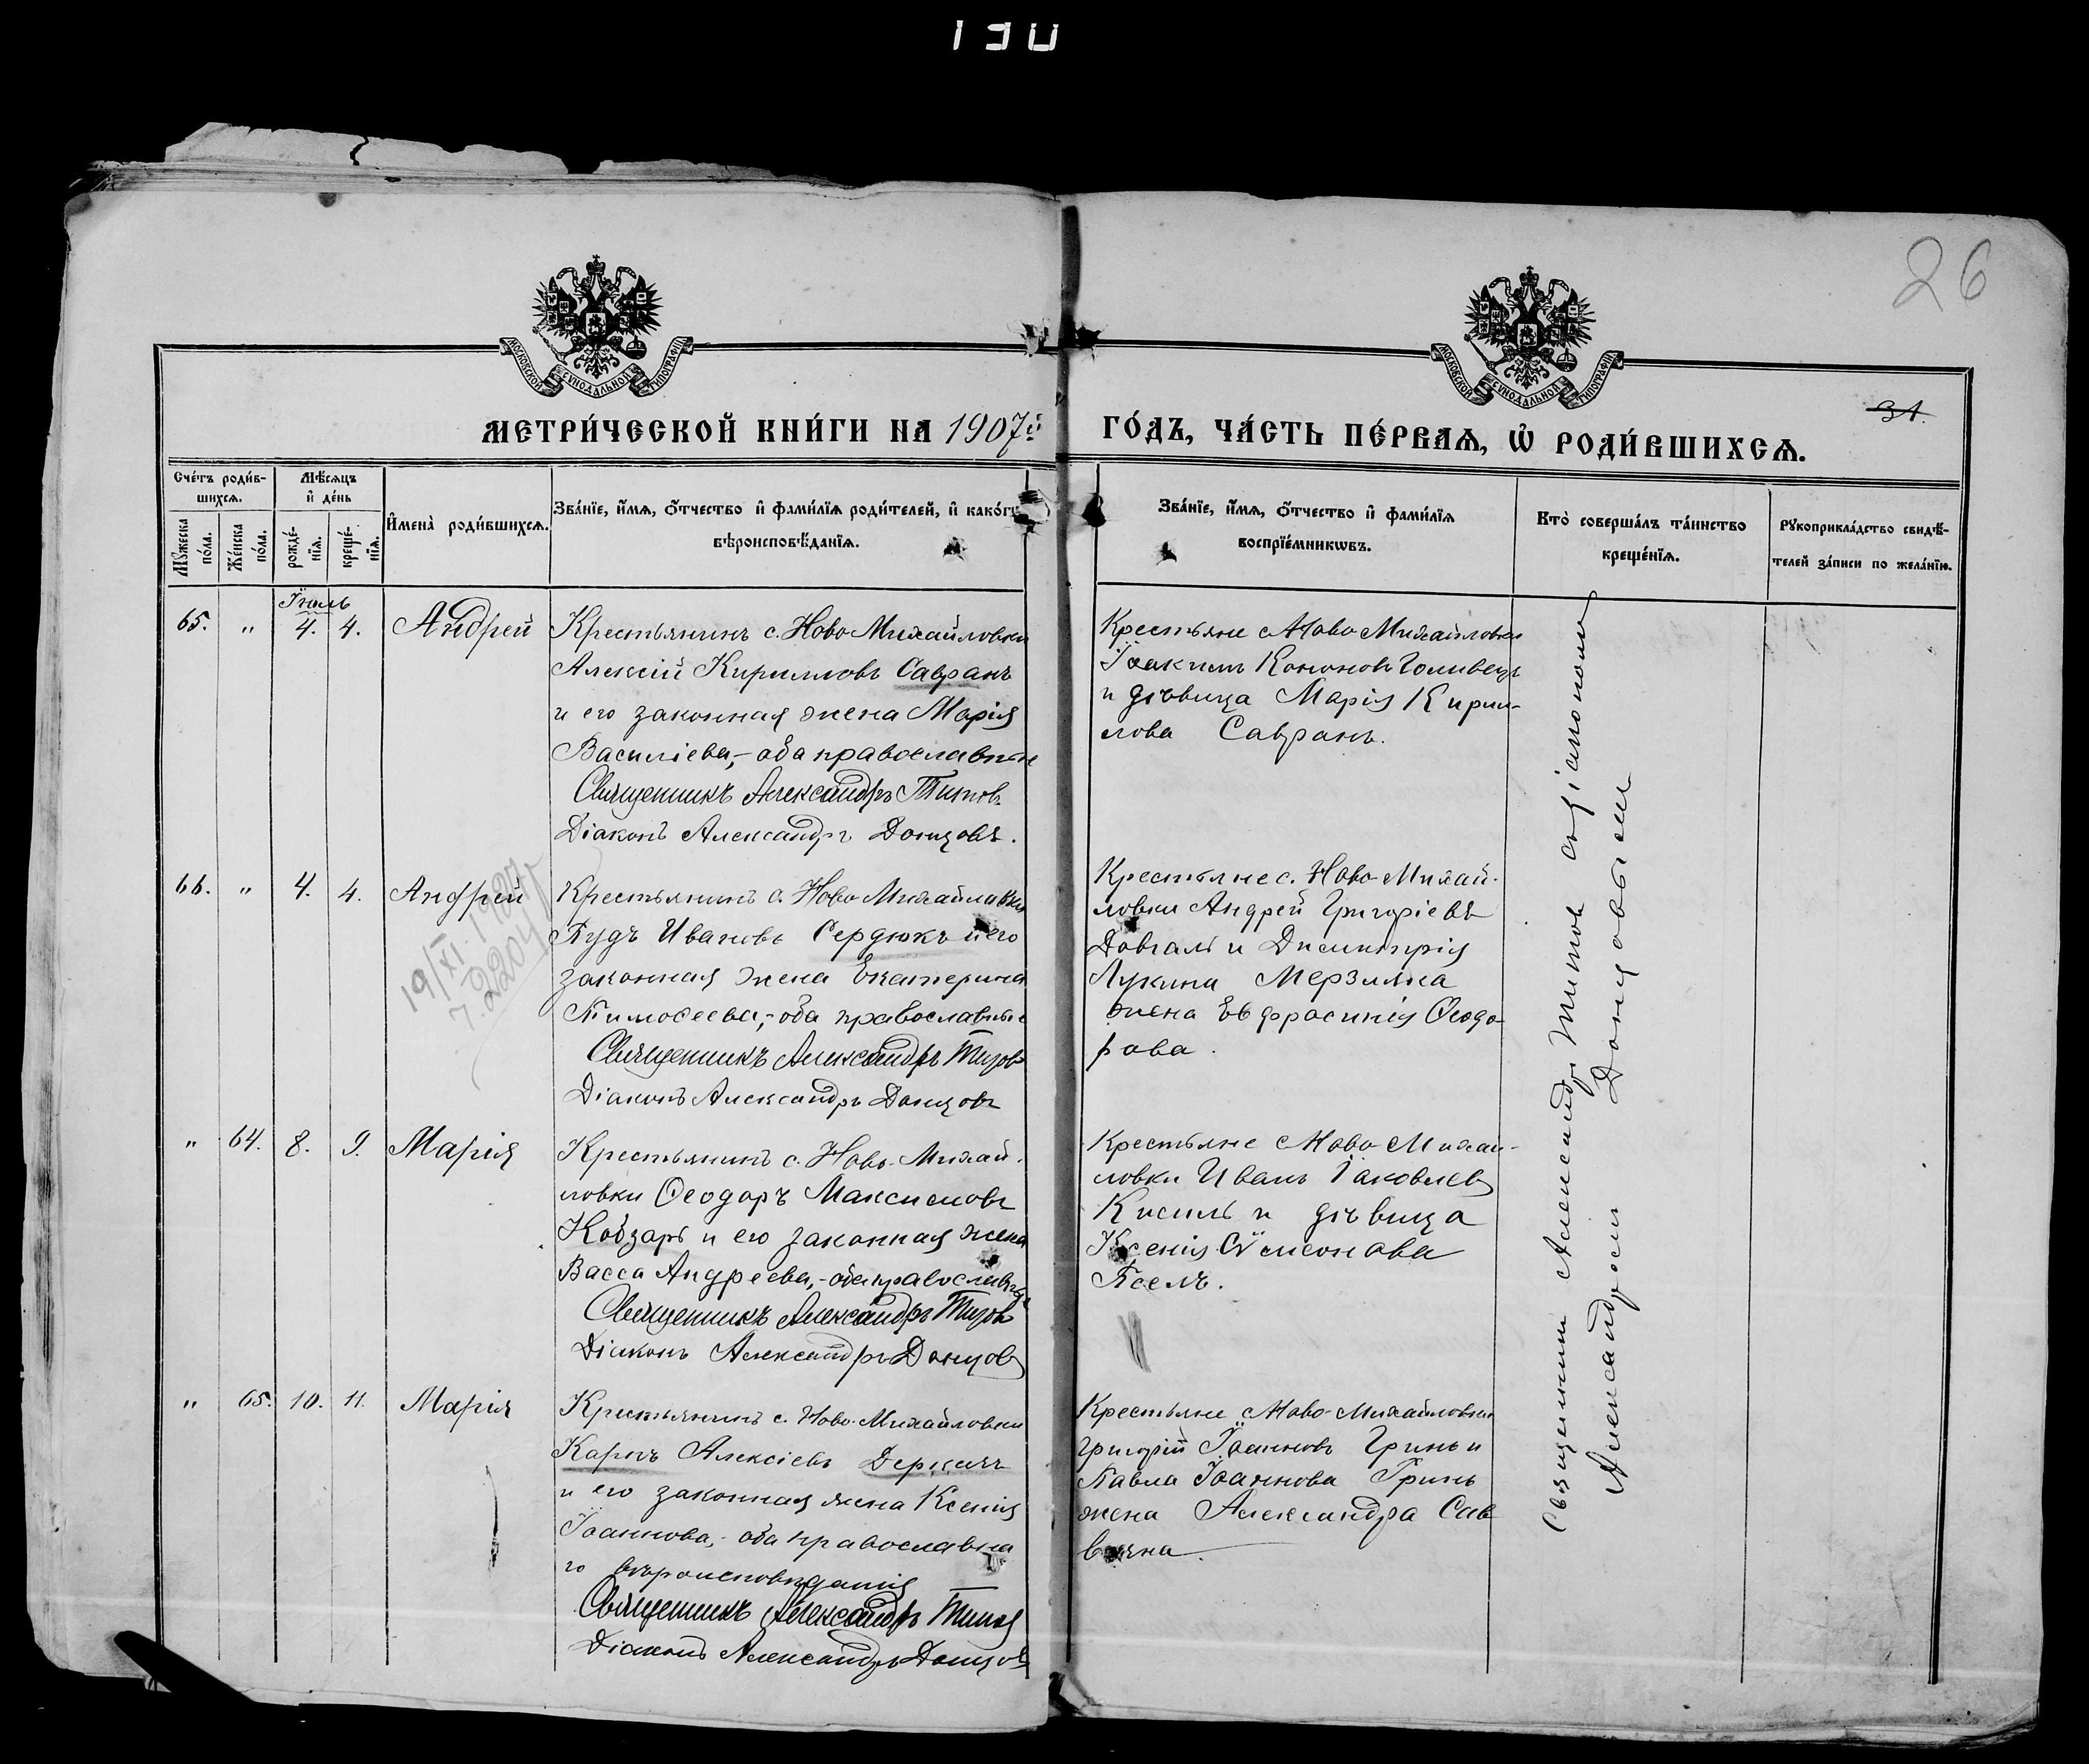 130
26
МОСКОВСКОЙ СѴНОДАЛЬНОЙ ТИПОГРАФІИ
МОСКОВСКОЙ СѴНОДАЛЬНОЙ ТИПОГРАФІИ
МЕТРИ́ЧЕСКОЙ КНИ́ГИ НА 1907й ГО́ДЪ, ЧА́СТЬ ПЕ́РВАѦ, Ѡ РОДИ́ВШИХСѦ.
31.
Сче́тъ роди́в-
шихсѧ.
Мѣ́сѧцъ
и҆ де́нь
Мꙋ́жеска
по́ла.
Же́нска
по́ла.
рожде́-
нїѧ.
креще́-
нїѧ.
И҆мена̀ роди́вшихсѧ.
Зва́нїе, и҆́мѧ, ѻ҆́тчество и҆ фами́лїѧ роди́телей, и҆ како́гѡ
вѣроисповѣ́данїѧ.
Зва́нїе, и҆́мѧ, ѻ҆́тчество и҆ фами́лїѧ
воспрїе́мникѡвъ.
Кто̀ соверша́лъ та́инство
креще́нїѧ.
Рꙋкоприкла́дство свидѣ́-
телей за́писи по жела́нїю.
Іюль
65. " 4. 4. Андрей
Крестьянинъ с. Ново Михайловки
Алексій Кирилловъ Савранъ
и его законная жена Марія
Василіева,- оба православные
Священникъ Александръ Титовъ
Діаконъ Александръ Донцовъ.
Крестьяне с Ново Михайловки
Іоакимъ Кононовъ Голивецъ
и дѣвица Марія Кирил-
лова Савранъ.
66. " 4. 4. Андрей
19/XI. 1927
7. 2204
Крестьянинъ с. Ново Михайловки
Пудъ Ивановъ Сердюкъ и его
законная жена Екатерина
Тимоѳеева,- оба православные
Священникъ Александръ Титовъ
Діаконъ Александръ Донцовъ
Крестьяне с. Ново-Михай-
ловки Андрей Григоріевъ
Довгаль и Димитрія
Лукина Мерзляка
жена Евфросинія Ѳеодо-
рова.
" 64. 8. 9. Марія
Крестьянинъ с. Ново-Михай-
ловки Ѳеодоръ Максимовъ
Кобзарь и его законная жена
Васса Андреева,- оба православные
Священникъ Александръ Титовъ
Діаконъ Александръ Донцовъ
Крестьяне с Ново Михай-
ловки Иванъ Іаковлевъ
Кисиль и дѣвица
Ксенія Сѵмеонова
Псёлъ.
" 65. 10. 11. Марія
Крестьянинъ с. Ново-Михайловки
Карпъ Алексіевъ Деркачъ
и его законная жена Ксенія
Іоаннова,- оба православна
го вѣроисповѣданія
Священникъ Александръ Титовъ
Діаконъ Александръ Донцовъ
Крестьяне с Ново-Михайловки
Григорій Іоанновъ Гринь и
Павла Іоаннова Гринь
жена Александра Сав
вична.
Священникъ Александръ Титовъ съ діакономъ
Александромъ Донцовымъ